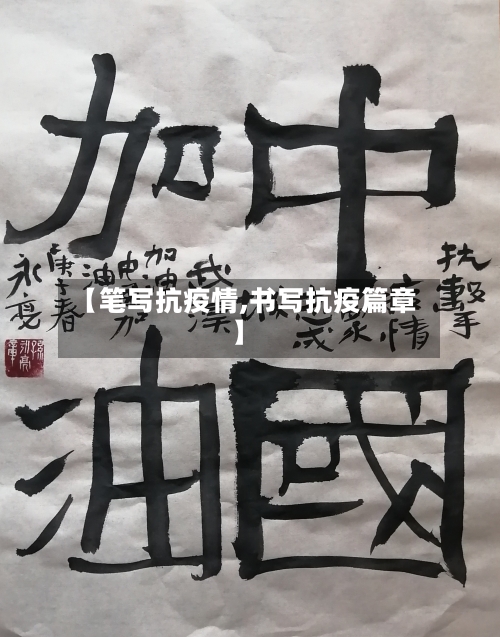 中國
加油
抗擊
疫情
众
成城
武汉
加油
中國加
油
庚子春
永亮
【笔写抗疫情,书写抗疫篇章
】